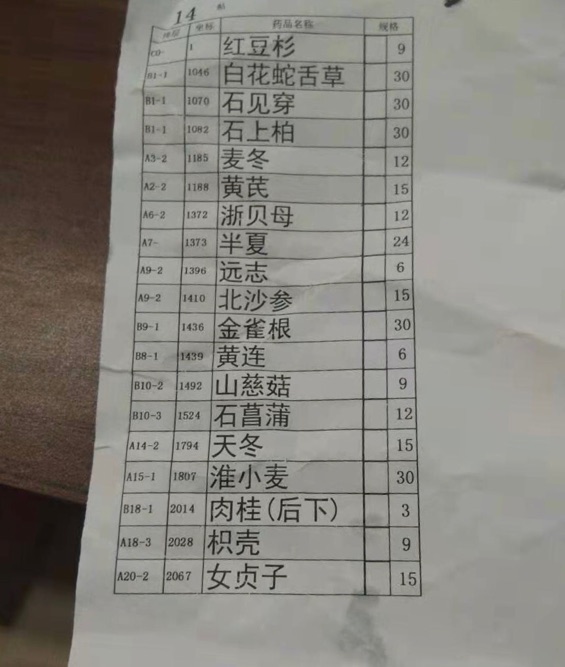 14 帖
货位 坐标 药品名称 规格
C0- 1 红豆杉 9
B1-1 1046 白花蛇舌草 30
B1-1 1070 石见穿 30
B1-1 1082 石上柏 30
A3-2 1185 麦冬 12
A2-2 1188 黄芪 15
A6-2 1372 浙贝母 12
A7- 1373 半夏 24
A9-2 1396 远志 6
A9-2 1410 北沙参 15
B9-1 1436 金雀根 30
B8-1 1439 黄连 6
B10-2 1492 山慈菇 9
B10-3 1524 石菖蒲 12
A14-2 1794 天冬 15
A15-1 1807 淮小麦 30
B18-1 2014 肉桂(后下) 3
A18-3 2028 枳壳 9
A20-2 2067 女贞子 15